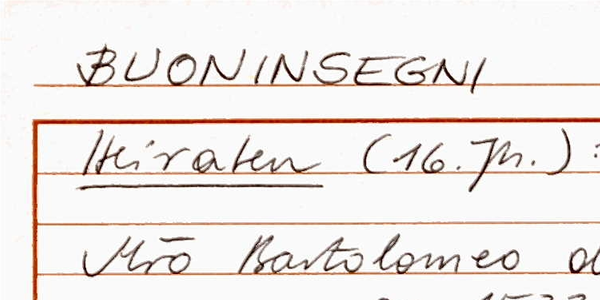 BUONINSEGNI
Heiraten (16. Jh.):
Mrō Bartolomeo d